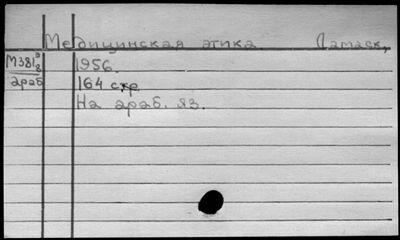 Медицинская этика Дамаск,
М381э/8 1956.
араб 164 стр.
На араб. яз.